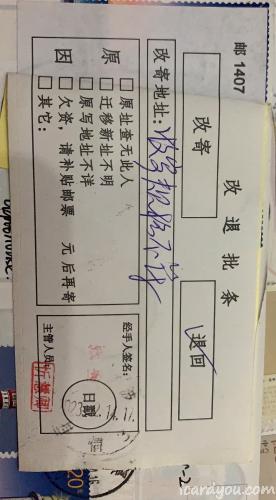 邮 1407
改退批条
改寄
退回
改寄地址:
原因
□ 原址查无此人
□ 迁移新址不明
□ 原写地址不详
□ 欠资，请补贴邮票 元后再寄
□ 其它:
经手人签名:
日戳
主管人员:
icardyou.com